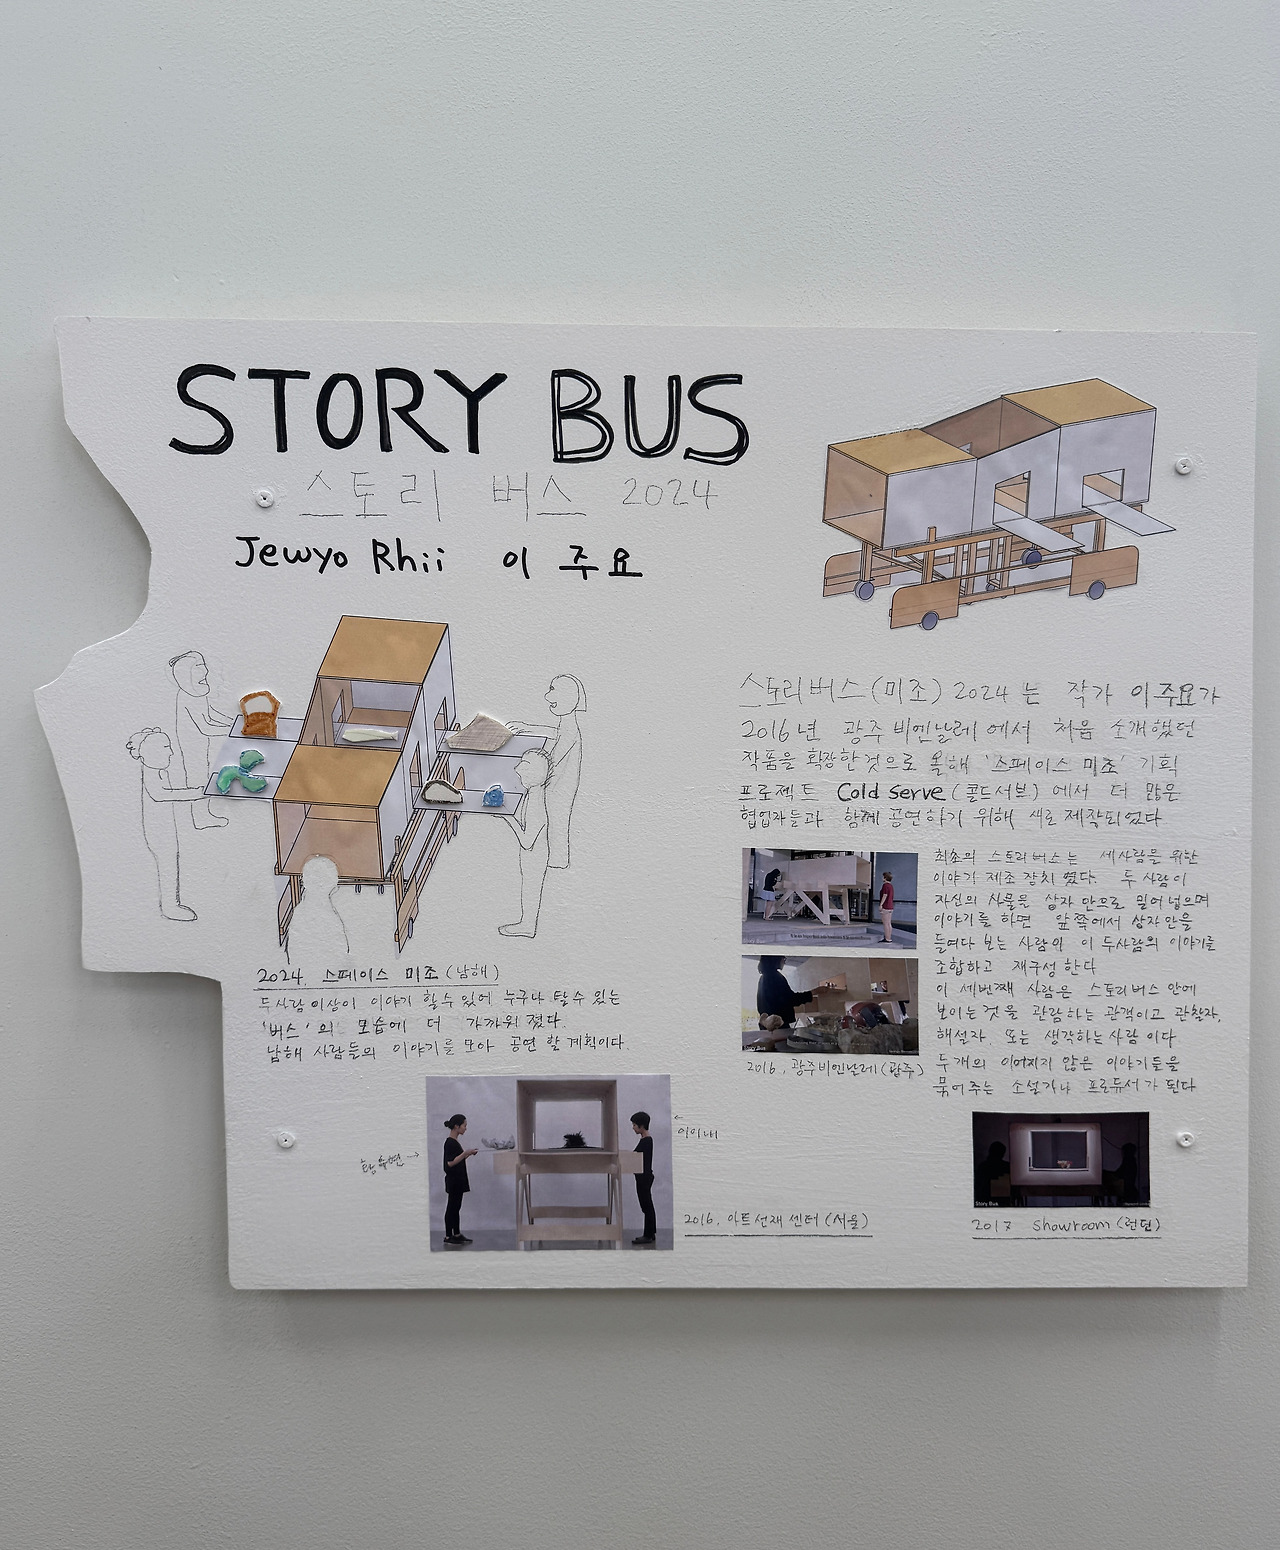 STORY BUS
스토리 버스 2024
Jewyo Rhii 이주요
스토리버스(미조) 2024 는 작가 이주요가
2016년 광주비엔날레에서 처음 소개했던
작품을 확장한것으로 올해 '스페이스 미조' 기획
프로젝트 Cold Serve (콜드서브) 에서 더 많은
협업자들과 함께 공연하기 위해 새로 제작되었다
최초의 스토리버스는 세사람을 위한
이야기 제조 장치 였다. 두 사람이
자신의 사물을 상자 안으로 밀어 넣으며
이야기를 하면 앞쪽에서 상자안을
들여다 보는 사람이 이 두사람의 이야기를
조합하고 재구성 한다
이 세번째 사람은 스토리버스 안에
보이는것을 관람하는 관객이고 관찰자,
해설자 또는 생각하는 사람 이다
두개의 이어지지 않은 이야기들을
묶어주는 소설가나 프로듀서가 된다
2016, 광주비엔날레(광주)
2024, 스페이스 미조 (남해)
두사람 이상이 이야기 할수 있어 누구나 탈수 있는
'버스'의 모습에 더 가까워 졌다.
남해 사람들의 이야기를 모아 공연 할 계획이다.
2016, 아트선재센터(서울)
Story Bus
2017 Showroom (런던)